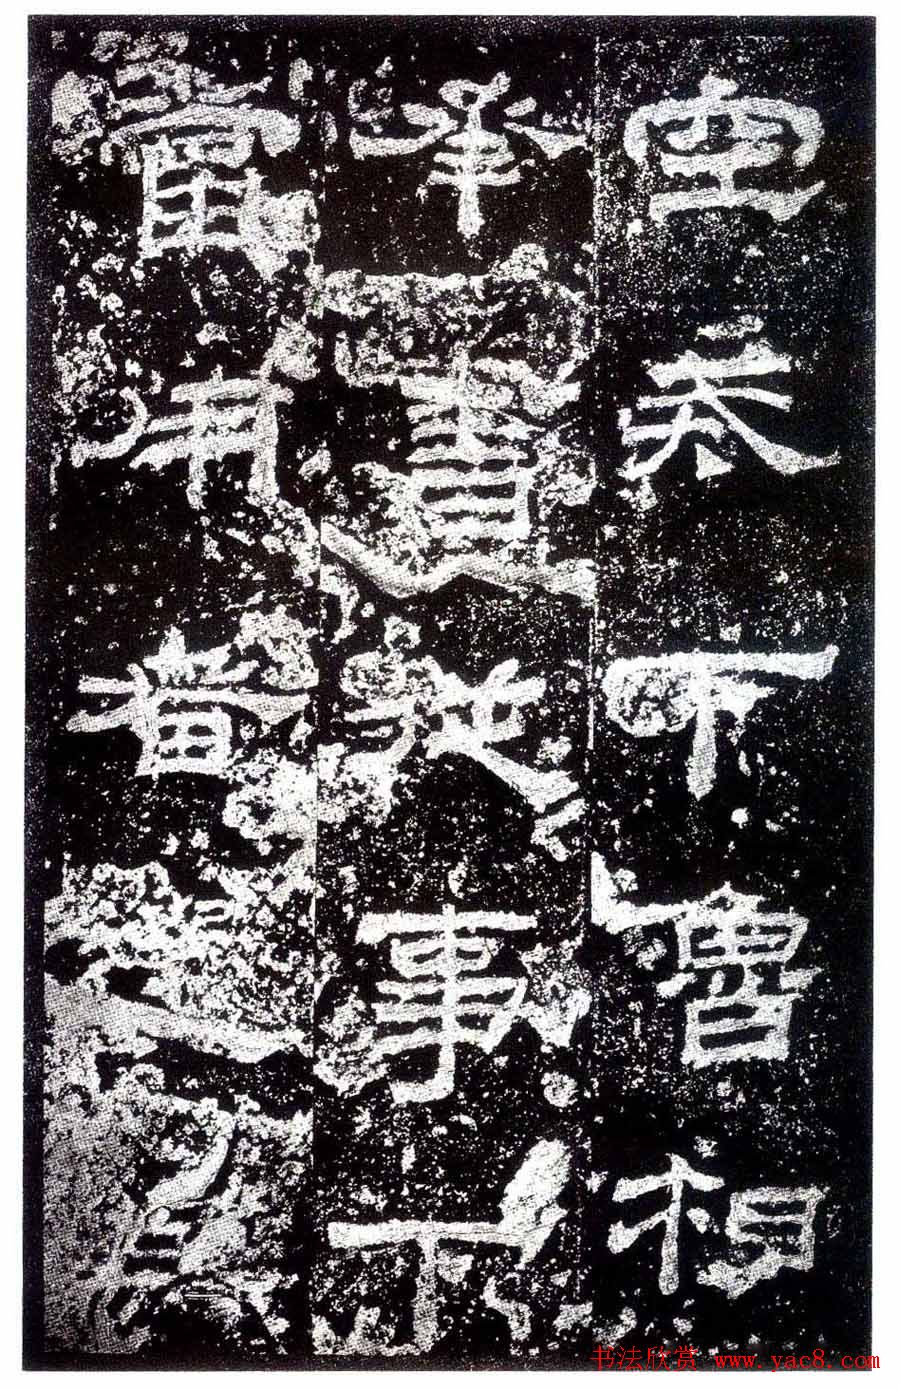 空戒下魯相
承書從事下
當用者選其
书法欣赏 www.yac8.com